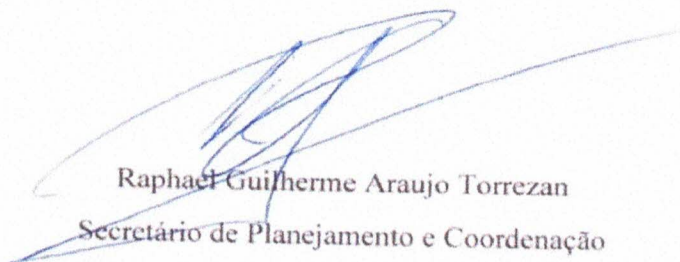 Raphael Guilherme Araujo Torrezan
Secretário de Planejamento e Coordenação